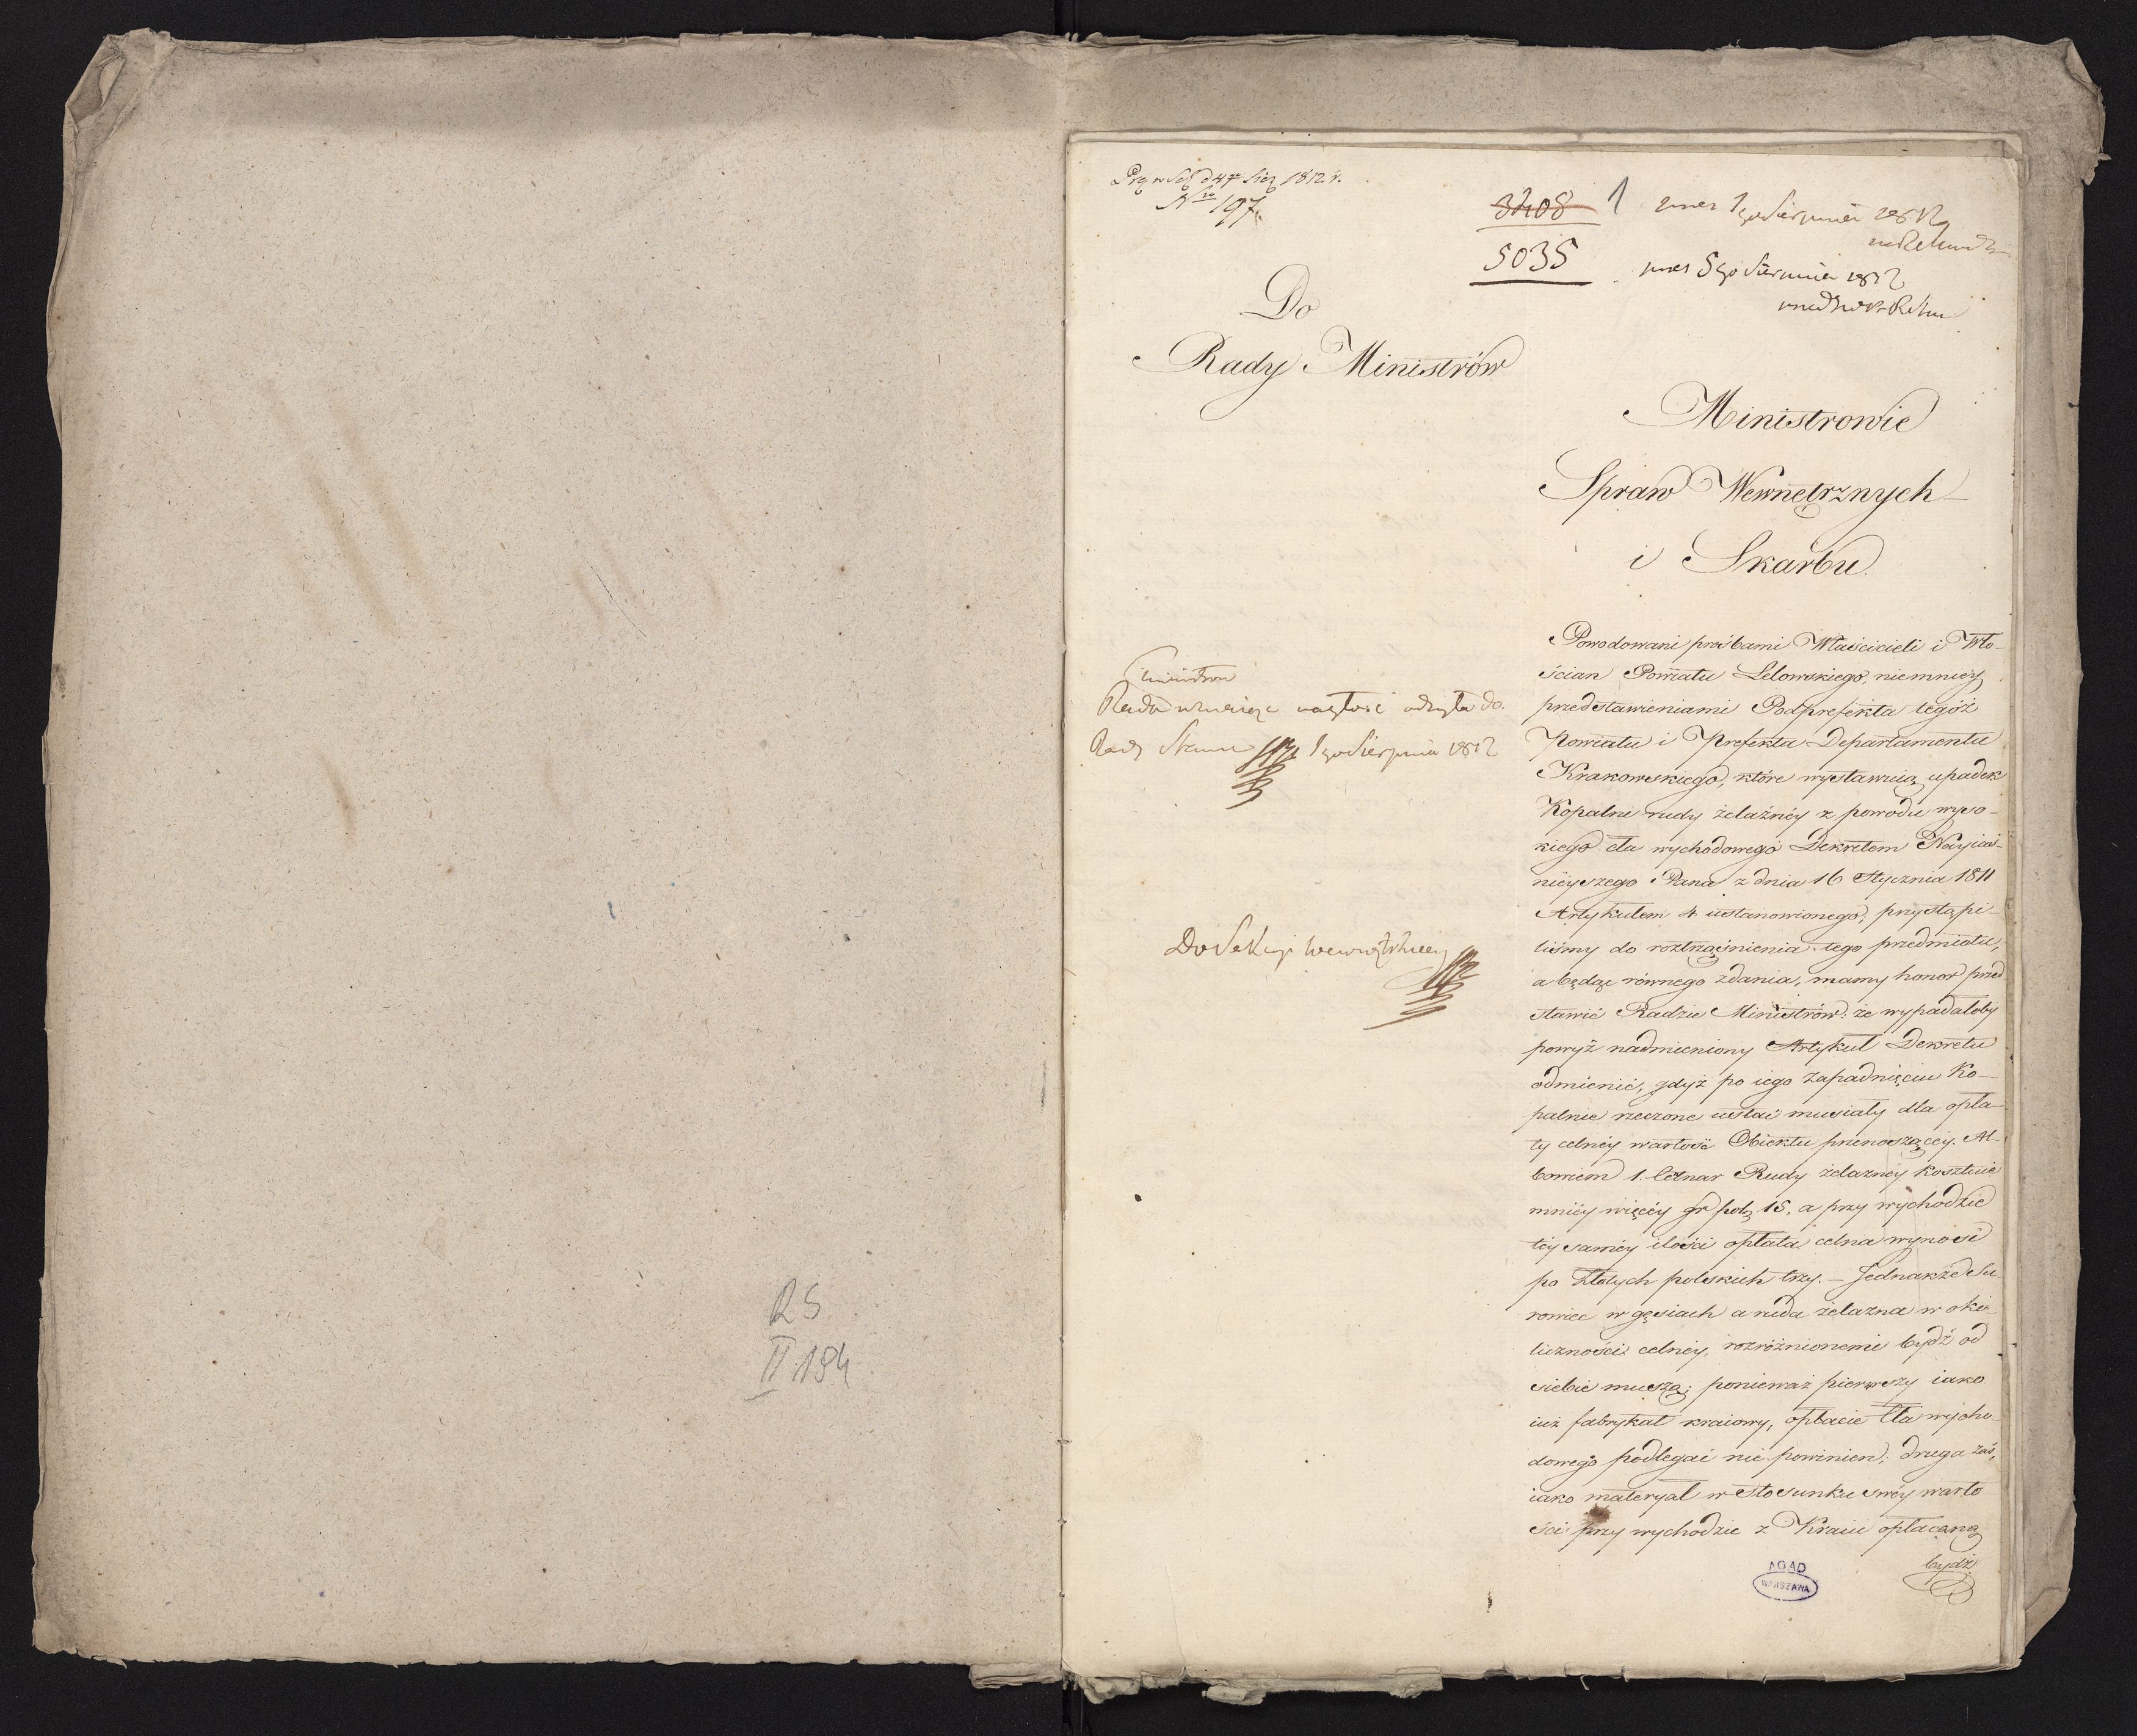 RS
II 184
1812 r.
Nro 197.
3408
5035
1
1go Sierpnia 1812
5go Sierpnia 1812
Do
Rady Ministrów
Ministrowie
Spraw Wewnętrznych
i Skarbu.
Powodowani prośbami Właścicieli i Wło-
ścian Powiatu Lelowskiego, niemniéy
przedstawieniami Podprefekta tegóż
Powiatu i Prefekta Departamentu
Krakowskiego, które wystawuią upadek
Kopalni rudy żelaźnéy z powodu wyso-
kiego cła wychodowego Dekretem Nayiaś-
nieyszego Pana z dnia 16 Stycznia 1811
Artykułem 4 ustanowionego; przystąpi-
liśmy do roztrząśnienia tego przedmiotu,
a będąc równego zdania, mamy honor przed
stawić Radzie Ministrów: że wypadałoby
powyż nadmieniony Artykuł Dekretu
odmienić, gdyż po iego zapadnięciu Ko-
palnie rzeczone ustać musiały dla opła-
ty celnéy wartość Obiektu przenoszącéy. Al-
bowiem 1. Cetnar Rudy żelazney kosztuie
mniéy więcéy gr pol. 15, a przy wychodzie
téy saméy ilości opłata celna wynosi
po Złotych polskich trzy. – Jednakże Su-
rowiec w gęsiach a ruda żelazna w oko-
liczności celnéy, rozróżnionemi bydź od
siebie muszą; ponieważ pierwszy iako
iuż fabrykat kraiowy, opłacie Cła wycho-
dowego podlegać nie powinien; druga zaś,
iako materyał w stosunku swéy warto
ści przy wychodzie z Kraiu opłacaną
bydź
Ministrów
Rada odsyła do
Rady Stanu 1go Sierpnia 1812
Do Sekcyi Wewnętrzney
AGAD
WARSZAWA